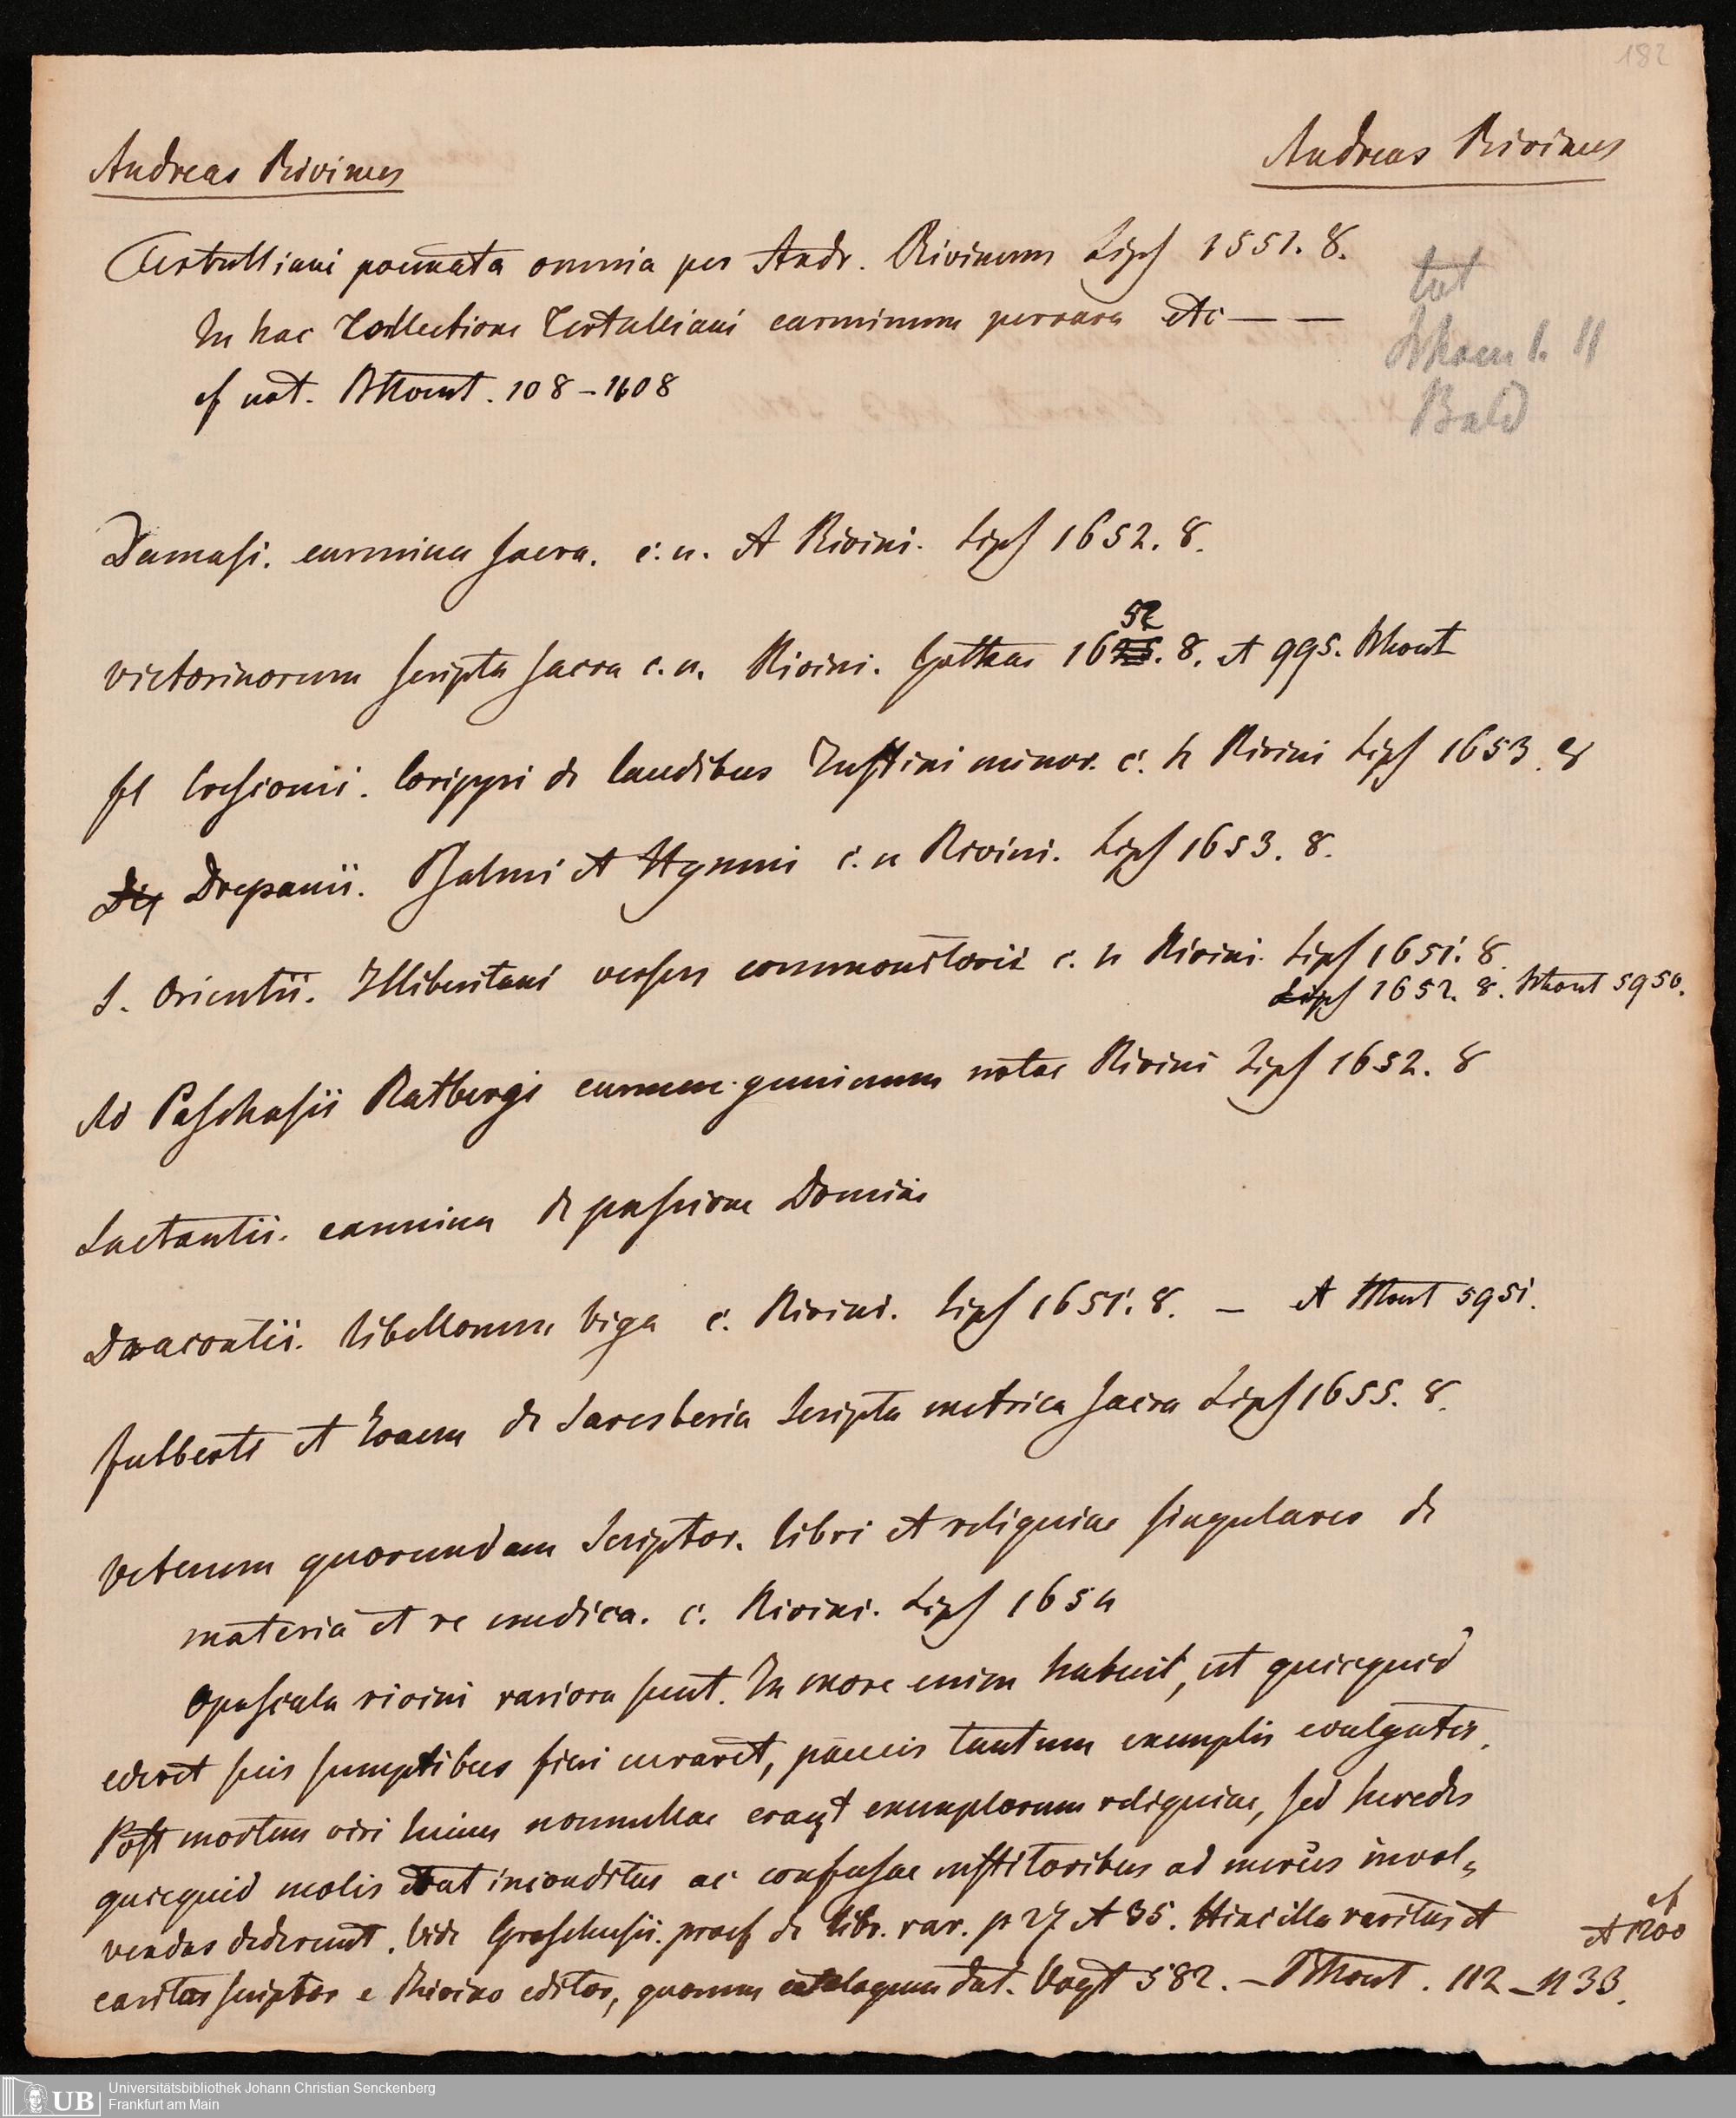 182
Andreas Rivinus
Andreas Rivinus
Tertulliani poemata omnia per Andr. Rivinum Lips 1551. 8.
In hac Collectione Tertulliani carminum perrara etc — —
cf not. BMont. 108-1608
tut
Bald
Damasi. carmina sacra. c. n. A Rivini. Lips 1652. 8.
52
Victorinorum scripta sacra c. n. Rivini. Gothae 16. 8. et 995. BMont
fl Cresconii. Corippi de laudibus Justini minor. c. n Rivini Lips 1653. 8
Drepanii. Psalmi et Hymni c. n Rivini. Lips 1653. 8.
S. Orientii. Illiberitani versus commonitorii c. n Rivini. Lips 1651. 8.
Lips 1652. 8. BMont 5950.
Ad Paschasii Ratbergi carmen geminum notae Rivini Lips 1652. 8
Lactantii. carmina de passione Domini
Dracontii. libellorum biga c. Rivini. Lips 1651. 8. — et BMont 5951.
Fulberti et de Saresberia Scripta metrica sacra Lips 1655. 8.
Veterum quorundam Scriptor. libri et reliquiae singulares de
materia et re medica. c. Rivini. Lips 1654
Opuscula rivini rariora sunt. In more enim habuit, ut quicquid
ederet suis sumptibus fieri curaret, paucis tantum exemplis evulgatis.
Post mortem viri huius nonnullae erant exemplorum reliquiae, sed heredes
quicquid molis erat inconditus ac confusae institoribus ad merces invol-
vendas dederunt. Vide Groschufii. praef de libr. rar. p 27 et 35. Hinc illa raritas et
cf
et 1200
caritas scriptor e Rivino editor, quorum catalogum dat. Vogt 582. — BMont. 112 - 1133.
UB Universitätsbibliothek Johann Christian Senckenberg
Frankfurt am Main